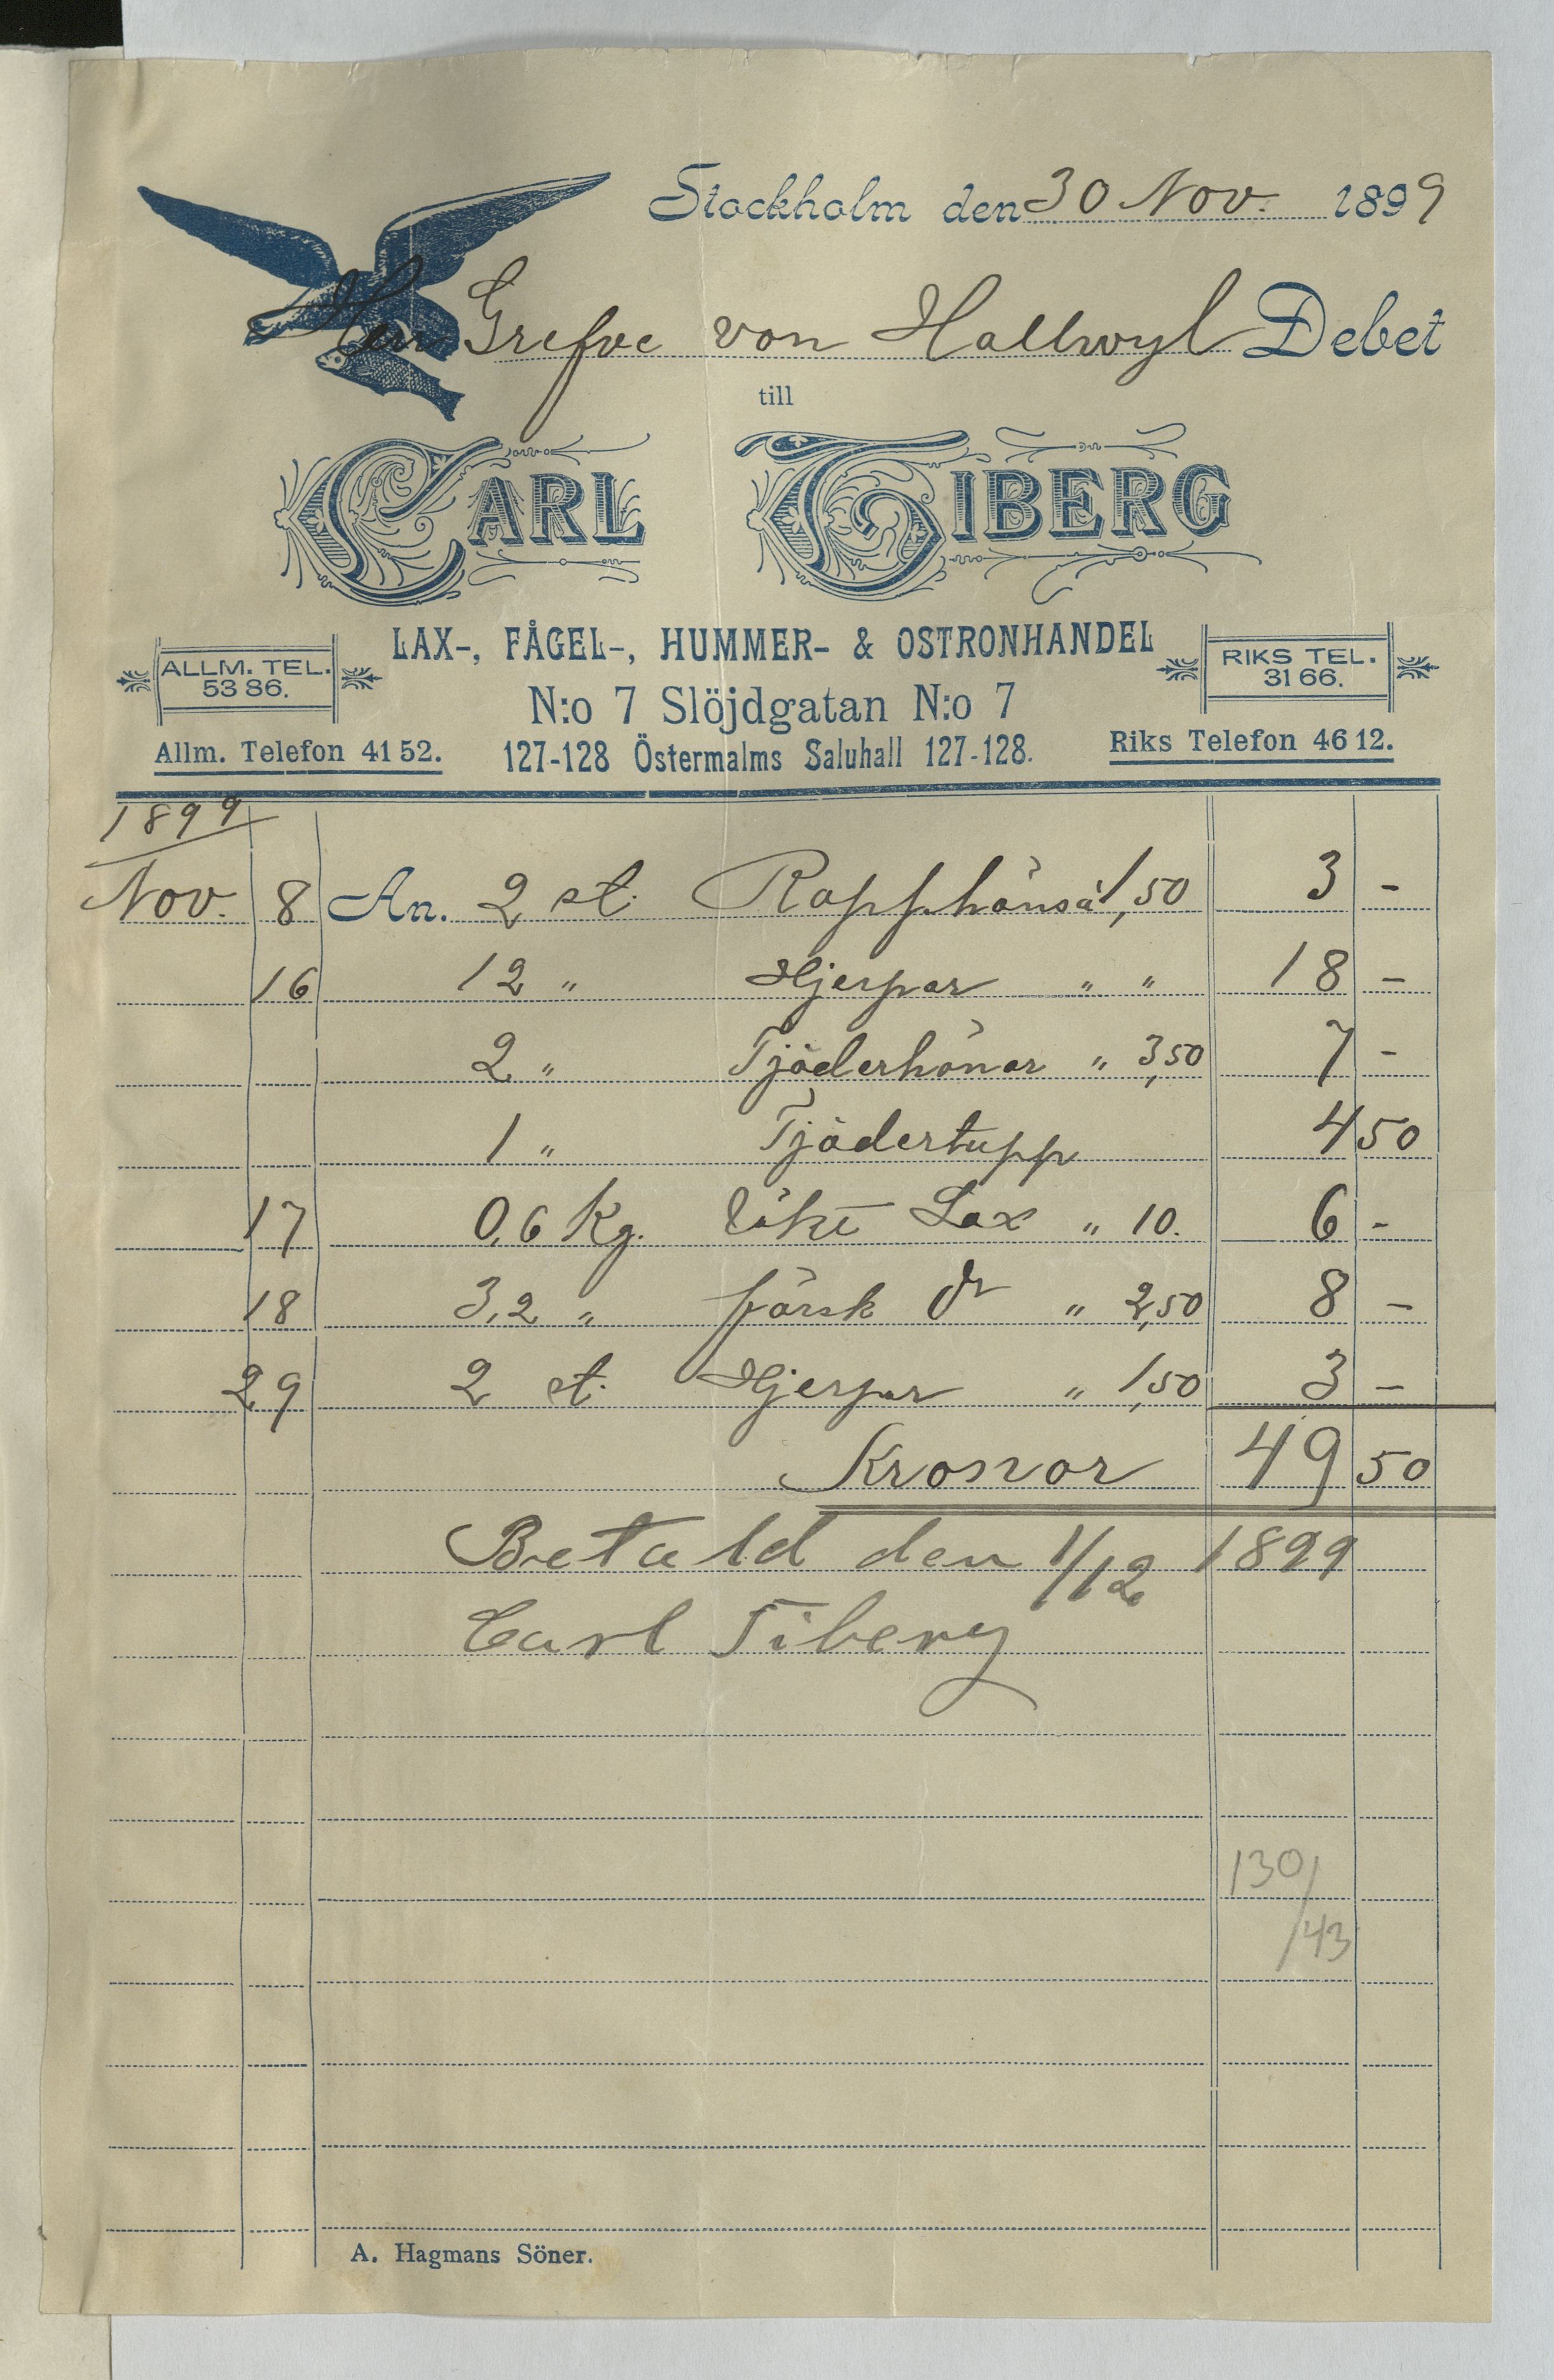 Stockholm den 30 Nov. 1899
Herr Grefve von Hallwyl Debet
till
CARL TIBERG
LAX-, FÅGEL-, HUMMER- & OSTRONHANDEL
ALLM. TEL. 53 86.
N:o 7 Slöjdgatan N:o 7
RIKS TEL. 31 66.
Allm. Telefon 41 52.
127-128 Östermalms Saluhall 127-128.
Riks Telefon 46 12.
1899
Nov. 8 An. 2 st. Rapphöns à 1,50 3 -
16 12 " Hjerpar " " 18 -
2 " Tjäderhönor " 3,50 7 -
1 " Tjädertupp 4 50
17 0,6 Kg. rökt Lax " 10. 6 -
18 3,2 " färsk do " 2,50 8 -
29 2 st. Hjerpar " 1,50 3 -
Kronor 49 50
Betald den 1/12 1899
Carl Tiberg
130/43
A. Hagmans Söner.